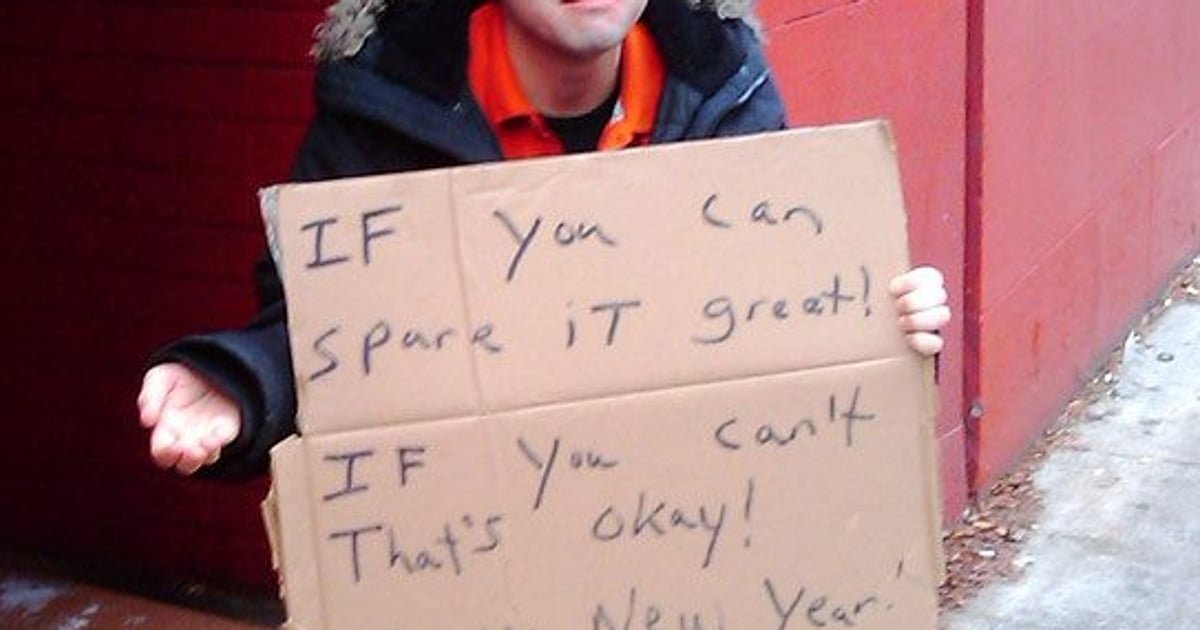 IF you can
spare iT great!
IF you can't
That's okay!
New Year!